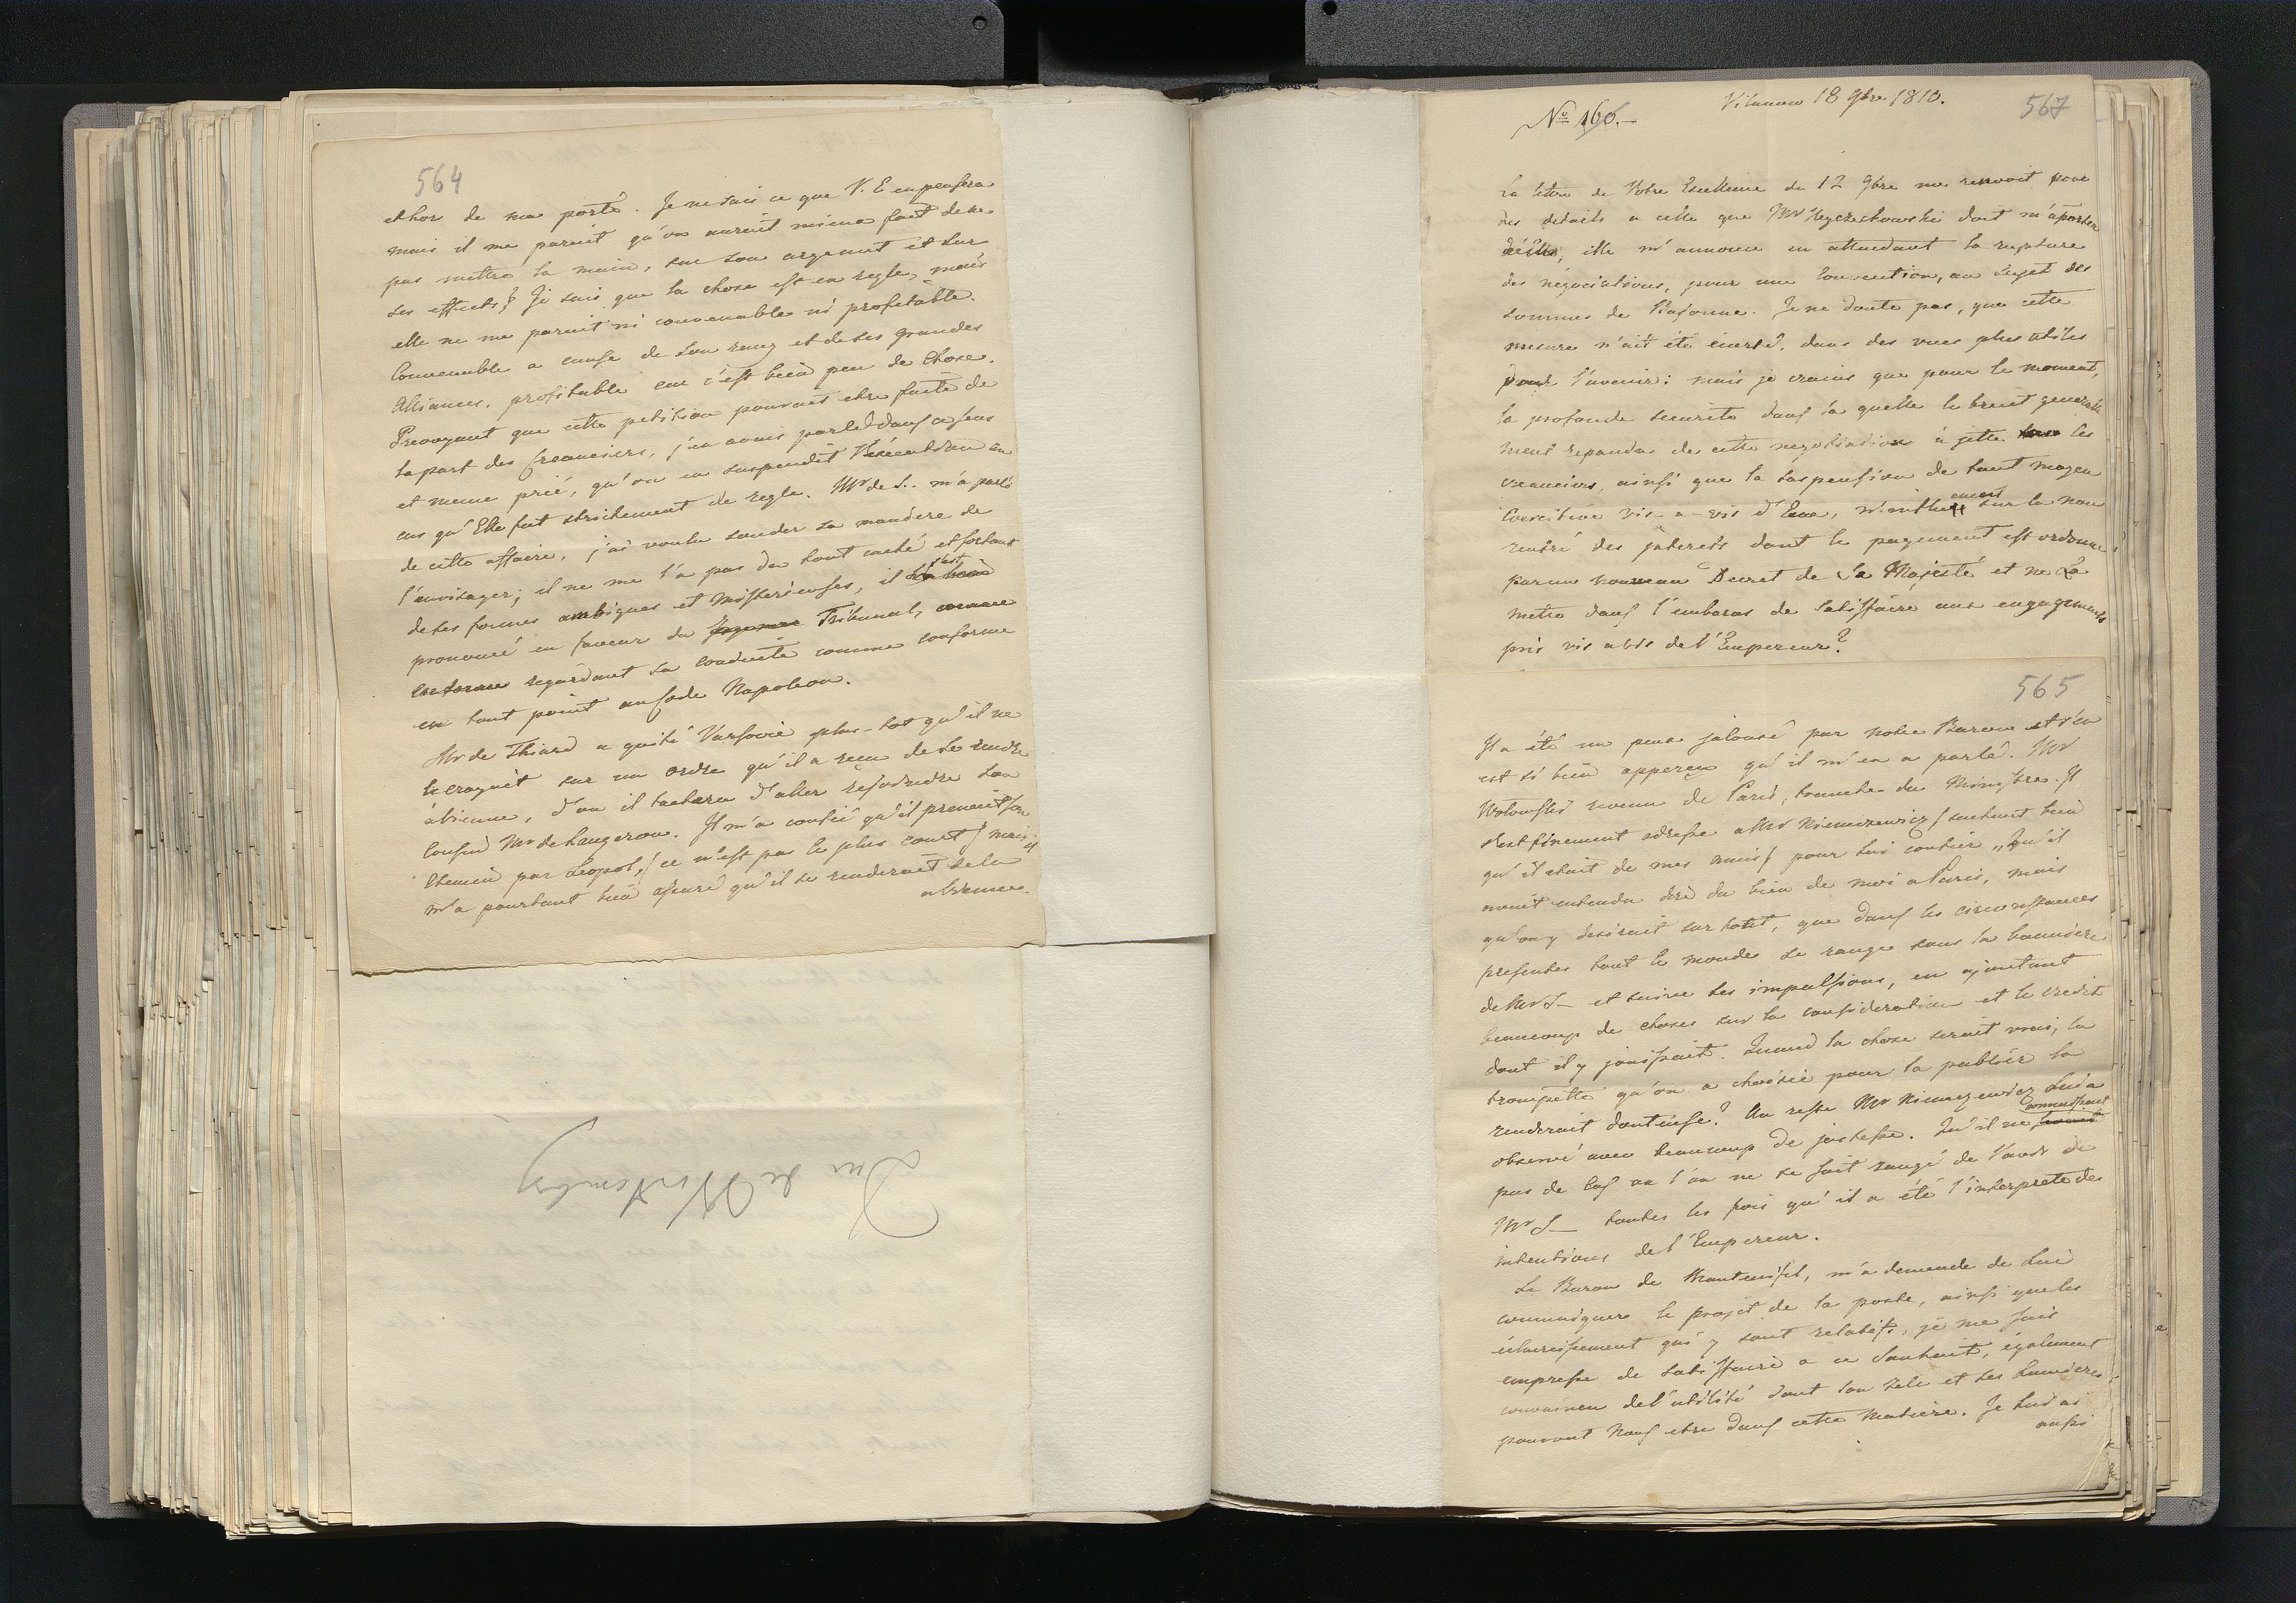 564
et hors de ma porté. Je ne sais ce que V. E en pensera
mais il me parait qu'on aurait mieux fait de ne
pas mettre la main, sur son argent et sur
ses effects? Je sais que la chose est en regle, mais
elle ne me parait ni convenable ni profitable.
Convenable a cause de son rang et de ses grandes
Alliances, profitable car c'est bien peu de chose.
Prevoyant que cette petition pouvait etre faite de
la part des creanciers, j'en avais parlé dans ce sens
et meme prié, qu'on en suspendit l'éxécution en
cas qu'Elle fut strictement de regle. Mr de S.. m'a parlé
de cette affaire, j'ai voulu sonder sa maniere de
l'envisager; il ne me l'a pas du tout caché et sortant
de ses formes ambigues et misterieuses, il s'est
prononcé en faveur du Tribunal,
regardant sa conduite comme conforme
en tout point au Code Napoleon.
Mr de Thiard a quité Varsovie plus-tot qu'il ne
le croyait sur un ordre qu'il a reçu de se rendre
à Vienne, d'ou il tachera d'aller rejoindre son
Cousin Mr de Langeron. Il m'a confié qu'il prenait son
Chemin par Leopol, / ce n'est pas le plus court / mais il
m'a pourtant bien assuré qu'il se renderait de la
a Vienne.
Duc de Wirtemberg
No 166.
Vilanow 18 9bre 1810.
567
La lettre de Votre Excellence du 12 9bre me renvoit pour
des details a celle que Mr doit m'aporter
elle m'annonce en attendant la rupture
des négociations, pour une Convention, au sujet des
sommes de Bajonne. Je ne doute pas, que cette
mesure n'ait été dans des vues plus utiles
pour l'avenir: mais je crains que pour le moment,
la profonde securité dans la quelle le bruit generale
ment repandu de cette negotiation à jetté les
creanciers, ainsi que la suspension de tout moyen
Coercitive vis-a-vis d'Eux, n'influent sur la non
rentré des jnterets dont le payement est ordonné
par un nouveau Decret de Sa Majesté et ne La
mette dans l'embaras de satisfaire aux engagements
pris vis a vis de l'Empereur?
565
Il a été un peux jalousé par notre Baron et s'en
est si bien apperçu qu'il m'en a parlé. Mr
revenu de Paris, tranche du Ministre. Il
s'est finement adresse a Mr Niemcewicz / sachant bien
qu'il etait de mes amis / pour lui confier „qu'il
avait entendu dire du bien de moi a Paris, mais
qu'on y desirait sur tout, que dans les circonstances
presentes tout le monde se range sous la banniere
de Mr S— et suive ses impulsions, en ajoutant
beaucoup de choses sur la consideration et le credit
dont il y jouissait. Quand la chose serait vrai, la
trompette qu'on a choisie pour la publier la
renderait douteuse? Au reste Mr Niemcewicz Lui a
observé avec beaucoup de justesse. Qu'il ne connaissait
pas de Cas ou l'on ne se soit rangé de l'avis de
Mr S— toutes les fois qu'il a été l'interprete des
intentions de l'Empereur.
Le Baron de Manteuffel, m'a demandé de Lui
communiquer le projet de la poste, ainsi que les
éclaircissement qui y sont relatifs, je me suis
empresse de satisfaire a ce souhait, également
convaincu de l'utilité dont son zele et ses lumieres,
pouvant nous etre dans cette matiere. Je Lui ai
aussi